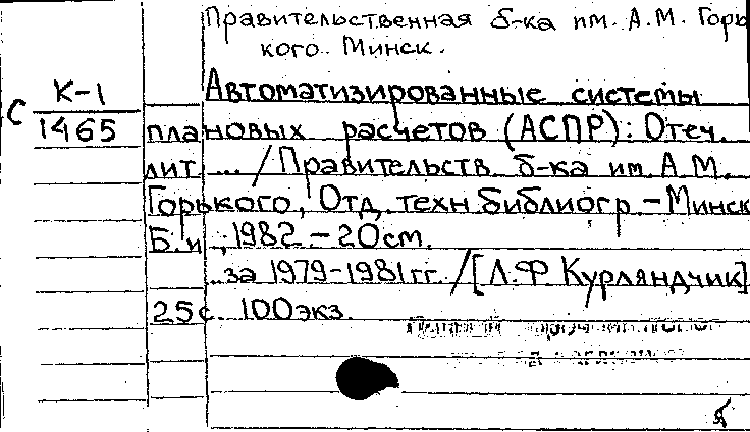 Правительственная б-ка им. А.М. Горь
кого. Минск.
С К-1
1465
Автоматизированные системы
плановых расчетов (АСПР): Отеч.
лит. ... / Правительств. б-ка им. А.М.
Горького, Отд. техн. библиогр. – Минск
Б.и., 1982 – 20см.
..за 1979-1981гг. / [Л.Ф. Курляндчик]
25с. 100экз.